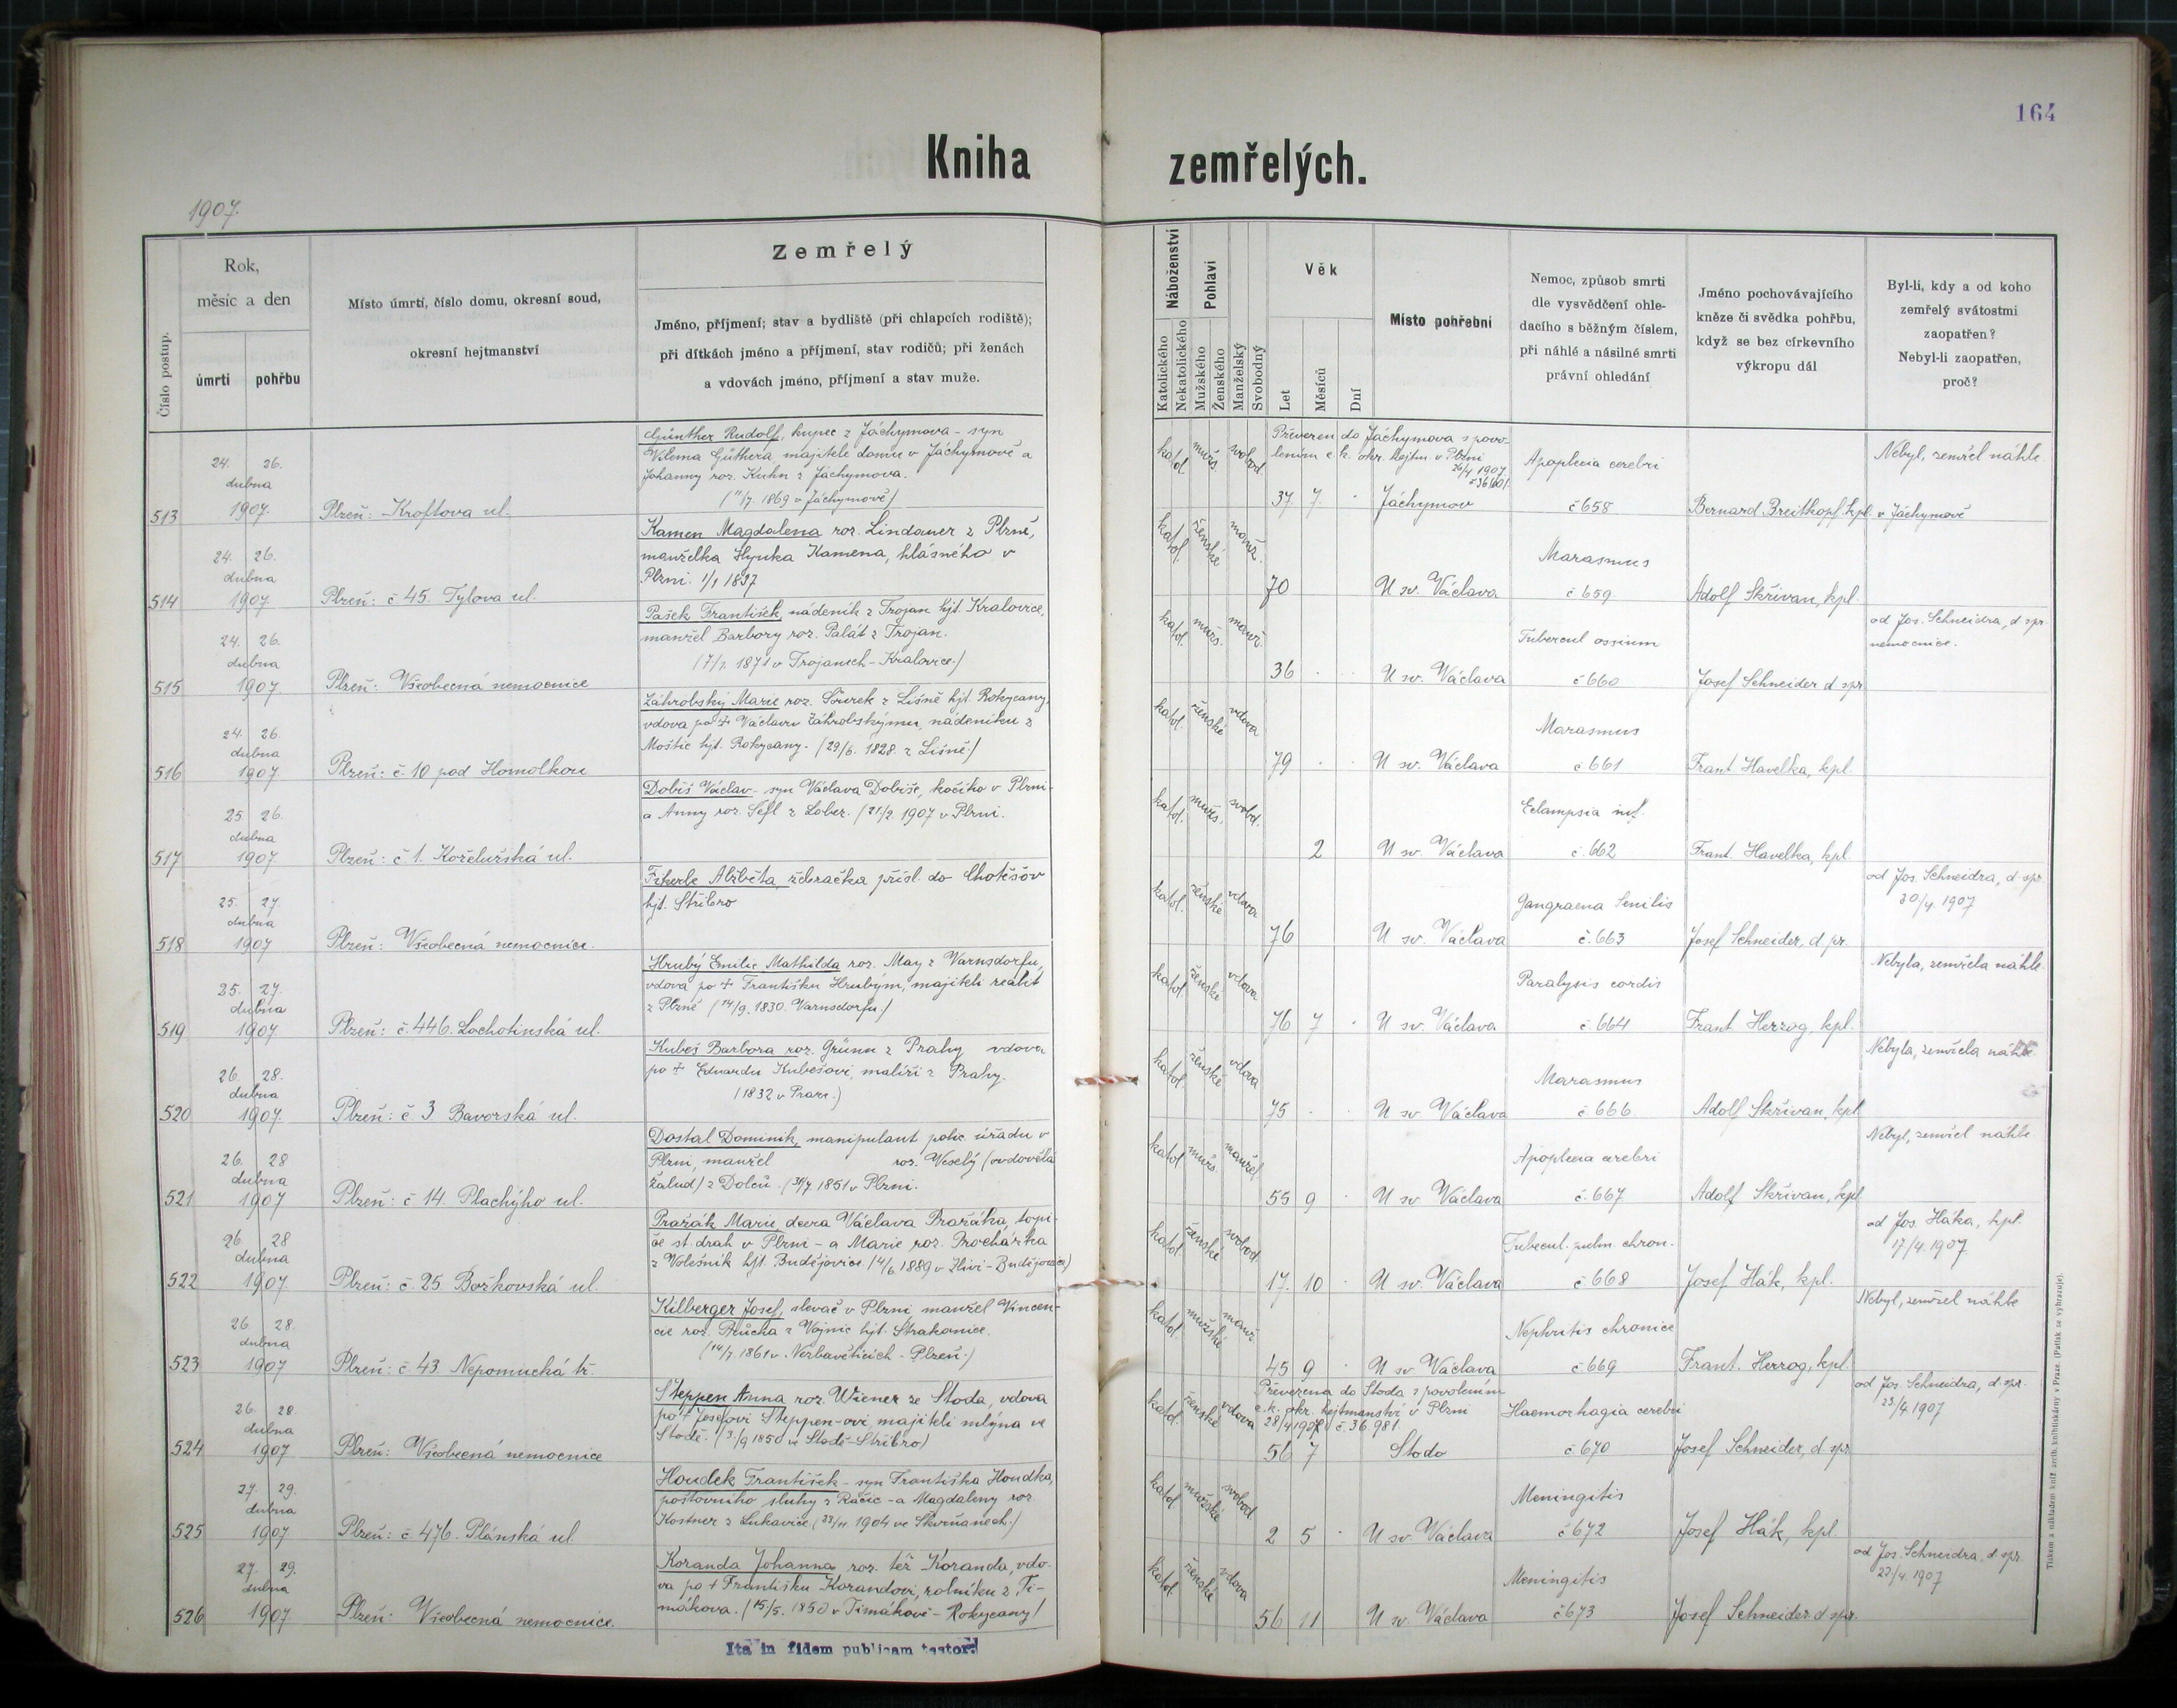 164
Kniha zemřelých.
1907.
Číslo postup.
Rok,
měsíc a den
úmrtí
pohřbu
Místo úmrtí, číslo domu, okresní soud,
okresní hejtmanství
Zemřelý
Jméno, příjmení; stav a bydliště (při chlapcích rodiště);
při dítkách jméno a příjmení, stav rodičů; při ženách
a vdovách jméno, příjmení a stav muže.
Náboženství
Katolického
Nekatolického
Pohlaví
Mužského
Ženského
Manželský
Svobodný
Věk
Let
Měsíců
Dní
Místo pohřební
Nemoc, způsob smrti
dle vysvědčení ohle-
dacího s běžným číslem,
při náhlé a násilné smrti
právní ohledání
Jméno pochovávajícího
kněze či svědka pohřbu,
když se bez církevního
výkropu dál
Byl-li, kdy a od koho
zemřelý svátostmi
zaopatřen?
Nebyl-li zaopatřen,
proč?
513
24. 26.
dubna
1907.
Plzeň: Kroftova ul.
Günther Rudolf, kupec z Jáchymova - syn
Vilema Günthera majitele domu v Jáchymově a
Johanny roz. Kuhn z Jáchymova.
(11/7. 1869 v Jáchymově)
katol. mužs. svobod.
Převezen do Jáchymova s povo-
lením c. k. okr. hejtm. v Plzni
26/4 1907
37 7 . Jáchymov
Apoplexia cerebri
č 658
Bernard Breitkopf, kpl. v Jáchymově
Nebyl, zemřel náhle.
514
24. 26.
dubna
1907.
Plzeň: č 45. Tylova ul.
Kamen Magdalena roz. Lindauer z Plzně,
manželka Hynka Kamena, hlásného v
Plzni. 1/1 1837
katol. ženské manž.
70 U sv. Václava
Marasmus
č 659
Adolf Skřivan, kpl.
515
24. 26.
dubna
1907.
Plzeň: Všeobecná nemocnice
Pašek František, nádeník z Trojan hjt. Kralovice,
manžel Barbory roz. Palát z Trojan.
(7/1. 1871 v Trojanech - Kralovice.)
katol. mužs. manž.
36 . . U sv. Václava
Tubercul ossium
č 660
Josef Schneider d spr
od Jos. Schneidra, d spr.
nemocnice.
516
24. 26.
dubna
1907.
Plzeň: č. 10 pod Homolkou
Záhrobský Marie roz. Šourek z Lišně hjt. Rokycany,
vdova po + Václavu Záhrobskýmu, nádeníku z
Moštic hjt. Rokycany. (29/6. 1828. z Lišně.)
katol. ženské vdova
79 . . U sv. Václava
Marasmus
č 661
Frant. Havelka, kpl.
517
25 26.
dubna
1907.
Plzeň: č 1. Koželužská ul.
Dobiš Václav - syn Václava Dobiše, kočího v Plzni -
a Anny roz. Šefl z Lobez. (21/2. 1907 v Plzni.
katol. mužs. svobd.
2 U sv. Václava
Eclampsia inf.
č 662
Frant. Havelka, kpl.
518
25. 27.
dubna
1907
Plzeň: Všeobecná nemocnice.
Fikerle Alžběta, žebračka přísl. do Chotěšov
hjt. Stříbro
katol. ženské vdova
76 U sv. Václava
Gangraena Senilis
č. 663
Josef Schneider, d. pr.
od Jos. Schneidra, d. spr.
20/4. 1907
519
25. 27.
dubna
1907
Plzeň: č. 446. Lochotinská ul.
Hrubý Emilie Mathilda roz. May z Varnsdorfu,
vdova po + Františku Hrubým, majiteli realit
z Plzně (14/9. 1830. Varnsdorfu.)
katol. ženské vdova
76 7 . U sv. Václava
Paralysis cordis
č. 664
Frant Herzog, kpl.
Nebyla, zemřela náhle.
520
26. 28.
dubna
1907.
Plzeň: č 3 Bavorská ul.
Kubeš Barbora roz. Grünn z Prahy vdova
po + Eduardu Kubešovi, malíři z Prahy.
(1832 v Praze.)
katol. ženské vdova
75 . . U sv Václava
Marasmus
č 666
Adolf Skřivan, kpl
Nebyla, zemřela náhle
521
26. 28
dubna
1907
Plzeň: č 14. Plachýho ul.
Dostal Dominik, manipulant polic úřadu v
Plzni, manžel roz. Veselý (ovdovělá
Žalud) z Dolců. (30/7 1851 v Plzni.
katol. mužs. manžel.
55 9 . U sv Václava
Apoplexia cerebri
č. 667
Adolf Skřivan, kpl
Nebyl, zemřel náhle
522
26 28
dubna
1907
Plzeň: č. 25. Božkovská ul.
Pražák Marie, dcera Václava Pražáka, topi-
če st. drah v Plzni - a Marie roz. Procházka
z Volešnik hjt. Budějovice. (4/6 1889 v Zlivi - Budějovice)
katol. ženské svobod.
17. 10 . U sv. Václava
Tubecul. pulm. chron.
č 668
Josef Hák, kpl.
od Jos. Háka, kpl.
17/4. 1907
523
26 28.
dubna
1907
Plzeň: č 43. Nepomucká tř.
Kilberger Josef, slevač v Plzni manžel Vincen-
cie roz. Průcha z Vojnic hjt. Strakonice.
(14/7. 1861 v. Nezbavěticích - Plzeň.)
katol. mužské manž.
45 9 . U sv. Václava
Nephritis chronica
č 669
Frant. Herzog, kpl
Nebyl, zemřel náhle
524
26. 28.
dubna
1907
Plzeň: Všeobecná nemocnice
Steppen Anna roz. Wiener ze Stoda, vdova
po + Josefovi Steppen-ovi, majiteli mlýna ve
Stodě. (3./9 1850 ve Stodě - Stříbro)
katol. ženské vdova
Převezena do Stoda s povolením
c. k. okr. hejtmanství v Plzni
28/4 1907 č. 36.981.
56 7 Stodo
Haemorhagia cerebri
č. 670
Josef Schneider, d. spr
od Jos. Schneidra, d. spr.
23/4. 1907
525
27. 29.
dubna
1907
Plzeň: č. 476. Plánská ul
Houdek František - syn Františka Houdka,
poštovního sluhy z Račic - a Magdaleny roz
Kostner z Lukavice. (23/11. 1904 ve Skvrňanech.)
katol. mužské svobod
2 5 . U sv. Václava
Meningitis
č 672
Josef Hák, kpl.
526
27. 29.
dubna
1907
Plzeň: Všeobecná nemocnice.
Koranda Johanna, roz. též Koranda, vdo-
va po + Františku Korandovi, rolníku z Ti-
mákova. (15/5. 1850 v Timákově - Rokycany)
katol. ženské vdova
56 11 U sv. Václava
Meningitis
č 673
Josef Schneider d spr.
od Jos. Schneidra, d. spr.
23/4. 1907
Ita in fidem publicam testor:
Tiskem a nákladem kníž. arcib. knihtiskárny v Praze. (Patisk se vyhrazuje).